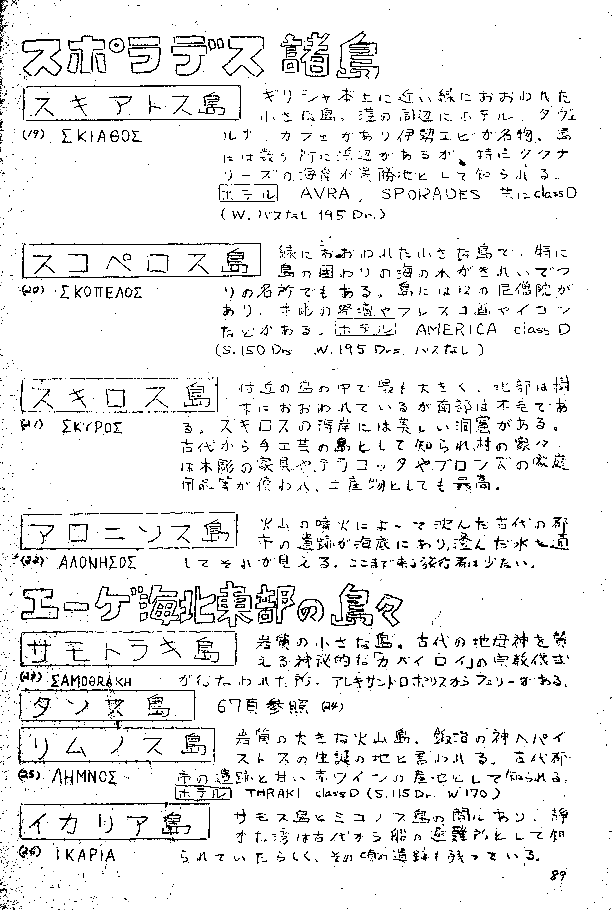 スポラデス 諸島
スキアトス島
ギリシャ本土に近い緑におおわれた
小さな島。港の周辺にホテル、タヴェ
(19) ΣΚΙΑΘΟΣ
ルナ、カフェがあり伊勢エビが名物。島
には数ヶ所に浜辺があるが、特にククナ
リーズの海岸が景勝地として知られる。
ホテル AVRA, SPORADES 共にclassD
(W.バスなし 195 Drs)
スコペロス島
緑におおわれた小さな島で、特に
島の囲わりの海の水がきれいでつ
(20) ΣΚΟΠΕΛΟΣ
りの名所でもある。島には12の尼僧院が
あり、木彫の祭壇やフレスコ画やイコン
などがある。ホテル AMERICA class D
(S.150 Drs W.195 Drs. バスなし)
スキロス島
付近の島の中で最も大きく、北部は樹
木におおわれているが南部は不毛であ
(21) ΣΚΥΡΟΣ
る。スキロスの海岸には美しい洞窟がある。
古代から手工芸の島として知られ、村の家々
は木彫の家具や、テラコッタやブロンズの家庭
用品等が使われ、土産物としても最高。
アロニソス島
火山の噴火によって沈んだ古代の都
市の遺跡が海底にあり、澄んだ水を通
(22) ΑΛΟΝΗΣΟΣ
してそれが見える。ここまで来る旅行者は少ない。
エーゲ海北東部の島々
サモトラキ島
岩質の小さな島。古代の地母神を賛
える神秘的な「カバイロイ」の宗教儀式
(23) ΣΑΜΟΘRΑΚΗ
が行なわれた所。アレキサンドロポリスからフェリーがある。
タソス島
67頁参照 (24)
リムノス島
岩質の大きな火山島。鍛冶の神ヘパイ
ストスの生誕の地と言われる。古代都
(25) ΛΗΜΝΟΣ
市の遺跡と甘い赤ワインの産地として知られる。
ホテル THRAKI classD (S.115 Drs W 170)
イカリア島
サモス島とミコノス島の間にあり、静
かな湾は古代から船の避難所として知
(26) ΙΚΑΡΙΑ
られていたらしく、その頃の遺跡も残っている。
89